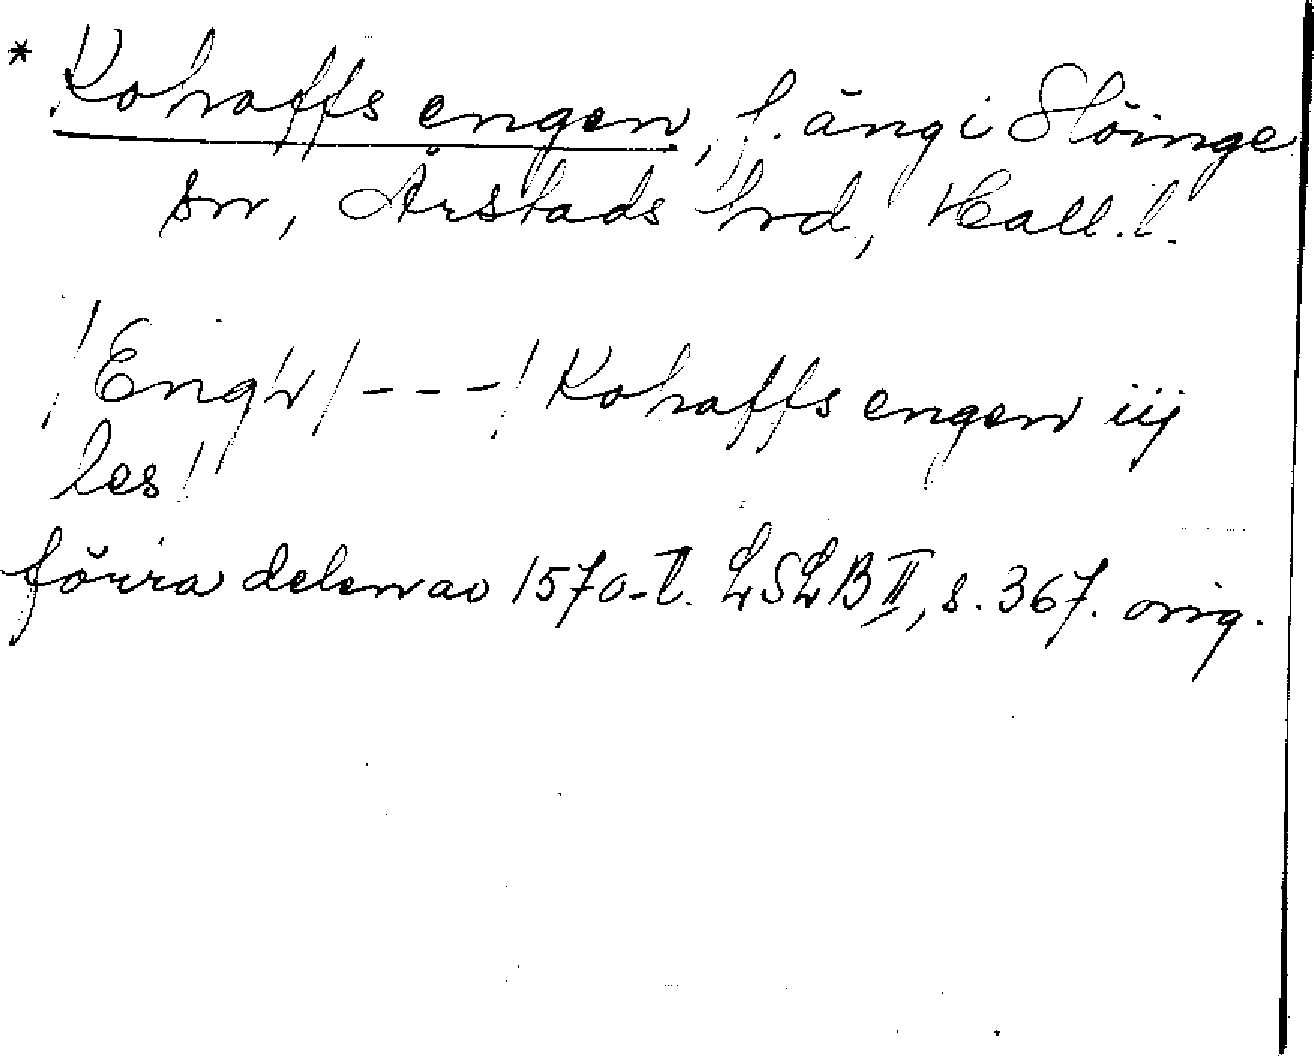 * Kohaffs engen, f. äng i Slöinge
sn, Årstads hd, Hall. l.
/Engh/ - - - / Kohaffs engen iij
les/
förra delen av 1570-t. LSLB II, s. 367. orig.